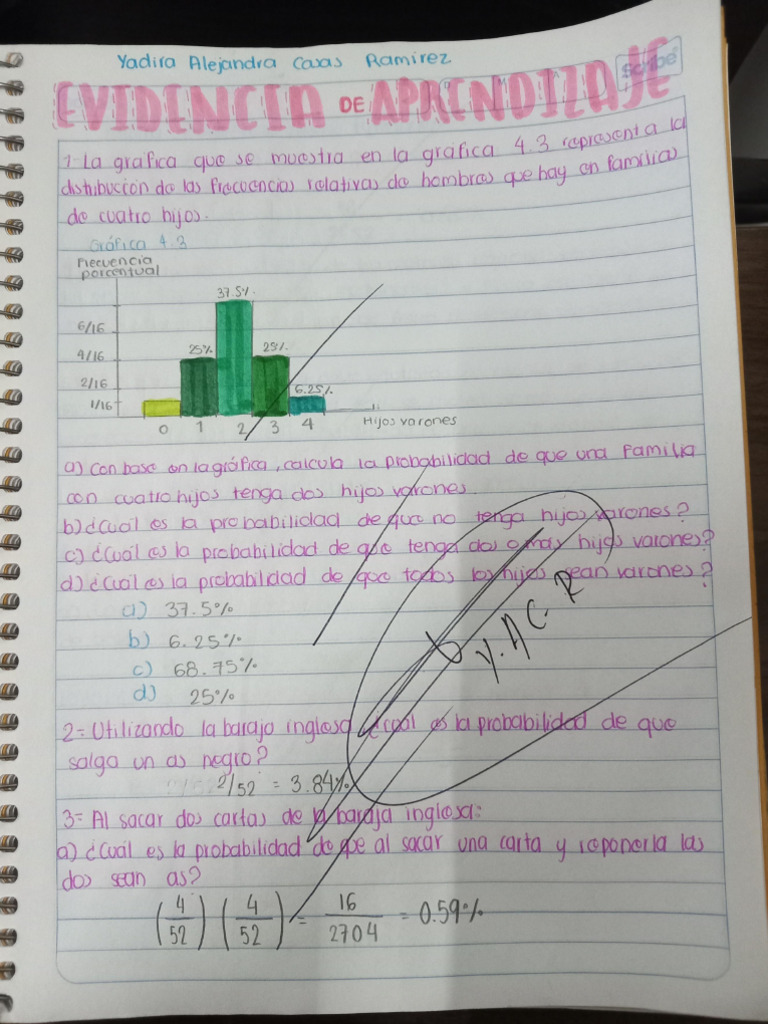 Yadira Alejandra Casas Ramirez
Scribe
EVIDENCIA DE APRENDIZAJE
1- La grafica que se muestra en la gráfica 4.3 representa la
distribución de las frecuencias relativas de hombres que hay en familias
de cuatro hijos.
Gráfica 4.3
Frecuencia
porcentual
37.5%
6/16
25%
25%
4/16
2/16
6.25%
1/16
0 1 2 3 4 Hijos varones
a) con base en la gráfica, calcula la probabilidad de que una familia
con cuatro hijos tenga dos hijos varones.
b) ¿Cuál es la probabilidad de que no tenga hijos varones?
c) ¿Cuál es la probabilidad de que tenga dos o más hijos varones?
d) ¿Cuál es la probabilidad de que todos los hijos sean varones?
a) 37.5%
b) 6.25%
c) 68.75%
d) 25%
Y.A.C.R
2= Utilizando la baraja inglesa ¿cuál es la probabilidad de que
salga un as negro?
2/52 = 3.84%
3= Al sacar dos cartas de la baraja inglesa:
a) ¿Cuál es la probabilidad de que al sacar una carta y reponerla las
dos sean as?
(4/52) (4/52) = 16/2704 = 0.59%